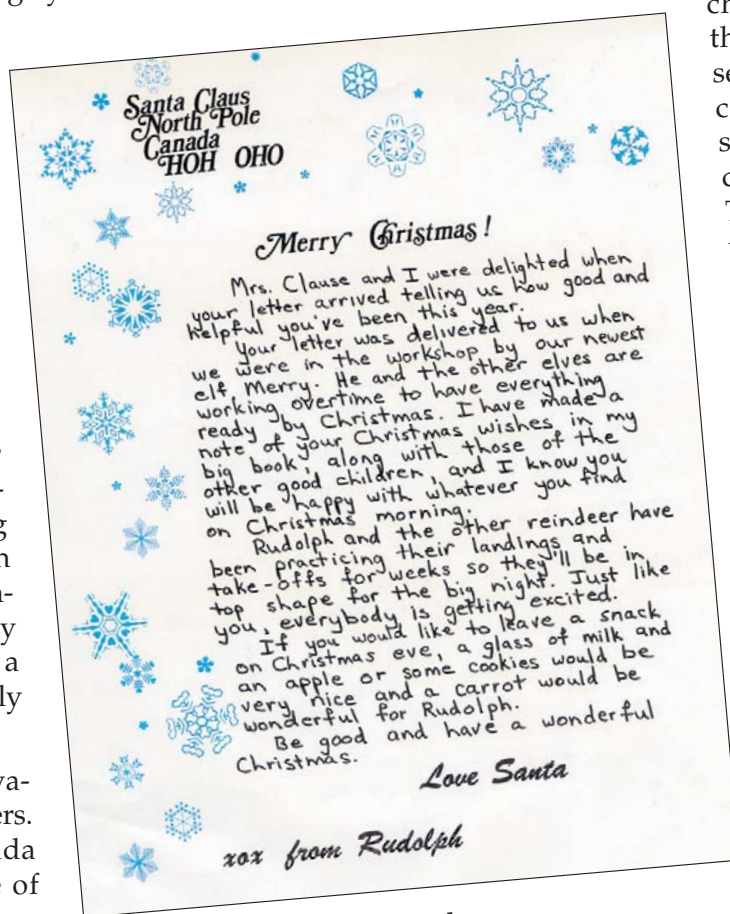 Santa Claus
North Pole
Canada
HOH OHO
Merry Christmas!
Mrs. Clause and I were delighted when
your letter arrived telling us how good and
helpful you've been this year.
Your letter was delivered to us when
we were in the workshop by our newest
elf Merry. He and the other elves are
working overtime to have everything
ready by Christmas. I have made a
note of your Christmas wishes in my
big book, along with those of the
other good children, and I know you
will be happy with whatever you find
on Christmas morning.
Rudolph and the other reindeer have
been practicing their landings and
take-offs for weeks so they'll be in
top shape for the big night. Just like
you, everybody is getting excited.
If you would like to leave a snack
on Christmas eve, a glass of milk and
an apple or some cookies would be
very nice and a carrot would be
wonderful for Rudolph.
Be good and have a wonderful
Christmas.
Love Santa
xox from Rudolph
y
a
ly
ers.
of